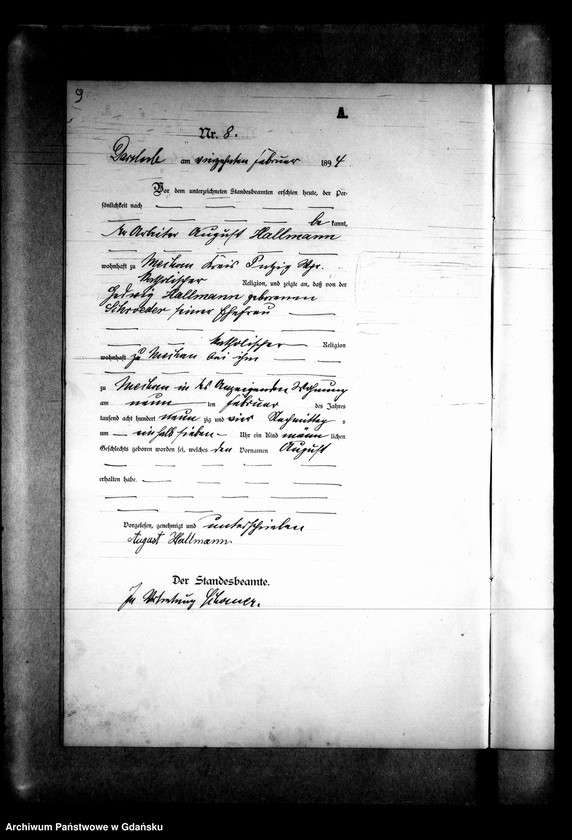 9
A.
Nr. 8.
Darslub am vierzehnten Februar 1894
Vor dem unterzeichneten Standesbeamten erschien heute, der Per-
sönlichkeit nach
be kannt,
der Arbeiter August Hallmann
wohnhaft zu Mechau Kreis Putzig Wpr.
katholischer Religion, und zeigte an, daß von der
Hedwig Hallmann geborenen
Schroeder seiner Ehefrau
katholischer Religion
wohnhaft zu Mechau bei ihm
zu Mechau in des Anzeigenden Wohnung
am neun ten Februar des Jahres
tausend acht hundert neun zig und vier Nachmittag s
um einhalb sieben Uhr ein Kind männ lichen
Geschlechts geboren worden sei, welches den Vornamen August
erhalten habe.
Vorgelesen, genehmigt und unterschrieben
August Hallmann.
Der Standesbeamte.
In Vertretung
Archiwum Państwowe w Gdańsku